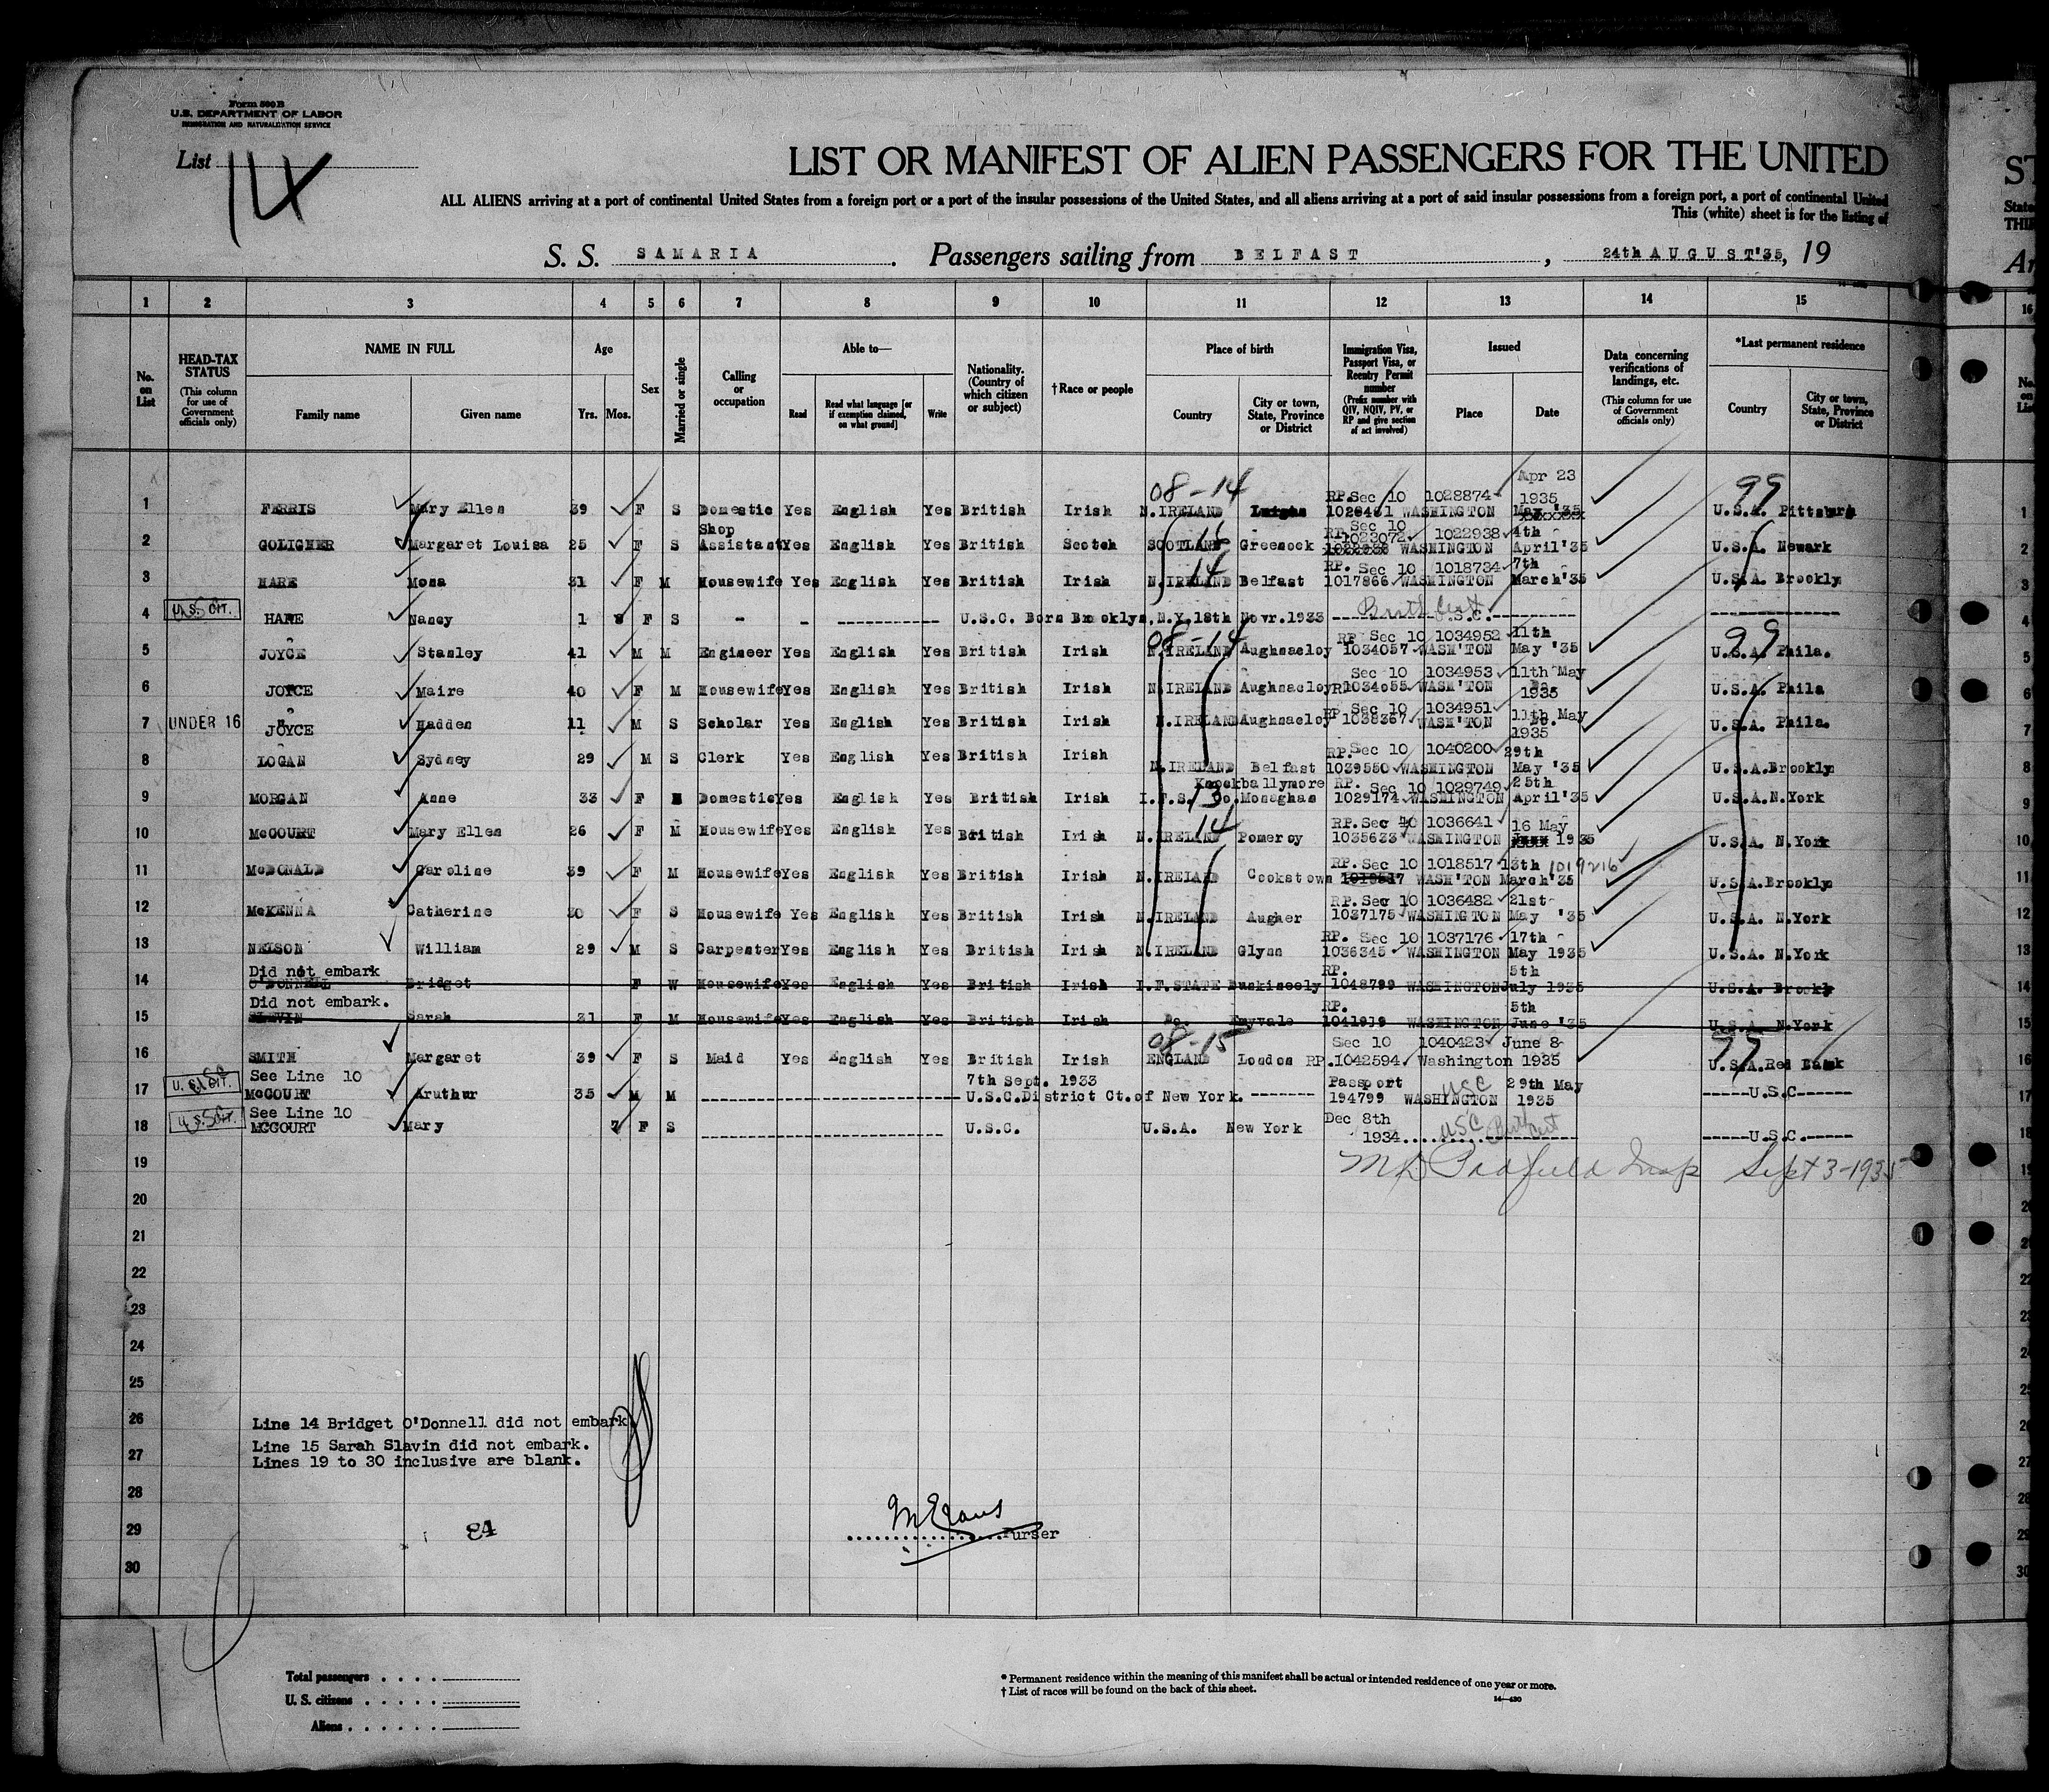 Form 500 B
U.S. DEPARTMENT OF LABOR
IMMIGRATION AND NATURALIZATION SERVICE
List 14
LIST OR MANIFEST OF ALIEN PASSENGERS FOR THE UNITED
ALL ALIENS arriving at a port of continental United States from a foreign port or a port of the insular possessions of the United States, and all aliens arriving at a port of said insular possessions from a foreign port, a port of continental United
This (white) sheet is for the listing of
S. S. SAMARIA. Passengers sailing from BELFAST, 24th AUGUST'35, 19
1 2 3 4 5 6 7 8 9 10 11 12 13 14 15
No. on List
HEAD-TAX STATUS
(This column for use of Government officials only)
NAME IN FULL
Family name
Given name
Age
Yrs. Mos.
Sex
Married or single
Calling or occupation
Able to—
Read
Read what language [or if exemption claimed, on what ground]
Write
Nationality. (Country of which citizen or subject)
†Race or people
Place of birth
Country
City or town, State, Province or District
Immigration Visa, Passport Visa, or Reentry Permit number
(Prefix number with QIV, NQIV, PV, or RP and give section of act involved)
Issued
Place
Date
Data concerning verifications of landings, etc.
(This column for use of Government officials only)
*Last permanent residence
Country
City or town, State, Province or District
08-14 Apr 23 99
RP. Sec 10 1028874 1935
1 FERRIS Mary Ellen 39 F S Domestic Yes English Yes British Irish N.IRELAND WASHINGTON May '35 U.S.A. Pittsburg 1
Shop Sec 10
RP. 1023072 1022938 4th
2 GOLIGHER Margaret Louisa 25 F S Assistant Yes English Yes British Scotch SCOTLAND Greenock WASHINGTON April'35 U.S.A. Newark 2
14 RP. Sec 10 1018734 7th
3 HARE Mona 31 F M Housewife Yes English Yes British Irish N.IRELAND Belfast 1017866 WASHINGTON March'35 U.S.A. Brookly 3
4 U.S. CIT. HARE Nancy 1 F S - - U.S.C. Born Brooklyn, N.Y. 18th Novr. 1933 Birth Cert U.S.C. 4
08-14 RP Sec 10 1034952 11th 99
5 JOYCE Stanley 41 M M Engineer Yes English Yes British Irish N.IRELAND Aughnacloy 1034057 WASH'TON May '35 U.S.A. Phila. 5
Sec 10 1034953 11th May
6 JOYCE Maire 40 F M Housewife Yes English Yes British Irish N.IRELAND Aughnacloy 1034055 WASH'TON 1935 U.S.A. Phila 6
RP Sec 10 1034951 11th May
7 UNDER 16 JOYCE Hadden 11 M S Scholar Yes English Yes British Irish N.IRELAND Aughnacloy 1038367 WASH'TON 1935 U.S.A. Phila. 7
RP. Sec 10 1040200 29th
8 LOGAN Sydney 29 M S Clerk Yes English Yes British Irish N.IRELAND Belfast 1039550 WASHINGTON May '35 U.S.A. Brookly 8
Knockballymore RP. Sec 10 1029749 25th
9 MORGAN Anne 33 F Domestic Yes English Yes British Irish I.F.S. Co. Monaghan 1029174 WASHINGTON April'35 U.S.A. N.York 9
14 RP. Sec 10 1036641 16 May
10 McCOURT Mary Ellen 26 F M Housewife Yes English Yes British Irish N.IRELAND Pomeroy 1035633 WASHINGTON 1935 U.S.A. N.York 10
RP. Sec 10 1018517 13th 1019216
11 McDONALD Caroline 39 F M Housewife Yes English Yes British Irish N.IRELAND Cookstown WASH'TON March'35 U.S.A. Brookly 11
RP. Sec 10 1036482 21st
12 McKENNA Catherine 30 F S Housewife Yes English Yes British Irish N.IRELAND Augher 1037175 WASHINGTON May '35 U.S.A. N.York 12
RP. Sec 10 1037176 17th
13 NELSON William 29 M S Carpenter Yes English Yes British Irish N.IRELAND Glynn 1036345 WASHINGTON May 1935 U.S.A. N.York 13
Did not embark RP. 5th
14 O'DONNELL Bridget F W Housewife Yes English Yes British Irish I.F.STATE 1048799 WASHINGTON July 1935 U.S.A. Brookly 14
Did not embark. RP. 5th
15 SLAVIN Sarah 31 F M Housewife Yes English Yes British Irish Do. Emyvale 1041919 WASHINGTON June '35 U.S.A. N.York 15
08-15 Sec 10 1040423 June 8 99
16 SMITH Margaret 39 F S Maid Yes English Yes British Irish ENGLAND London RP. 1042594 Washington 1935 U.S.A. Red Bank 16
See Line 10 7th Sept. 1933 Passport USC 29th May
17 U.S. CIT. McCOURT Aruthur 35 M M U.S.C. District Ct. of New York. 194799 WASHINGTON 1935 U.S.C 17
See Line 10 Dec 8th
18 U.S. CIT. MCCOURT Mary 7 F S U.S.C. U.S.A. New York 1934 USC Birth Cert U.S.C. 18
19 Insp Sept 3-1935
20
21
22
23
24
25
26 Line 14 Bridget O'Donnell did not embark
Line 15 Sarah Slavin did not embark.
27 Lines 19 to 30 inclusive are blank.
28
29 84 M Evans Purser
30
14
Total passengers
U. S. citizens
Aliens
* Permanent residence within the meaning of this manifest shall be actual or intended residence of one year or more.
† List of races will be found on the back of this sheet.